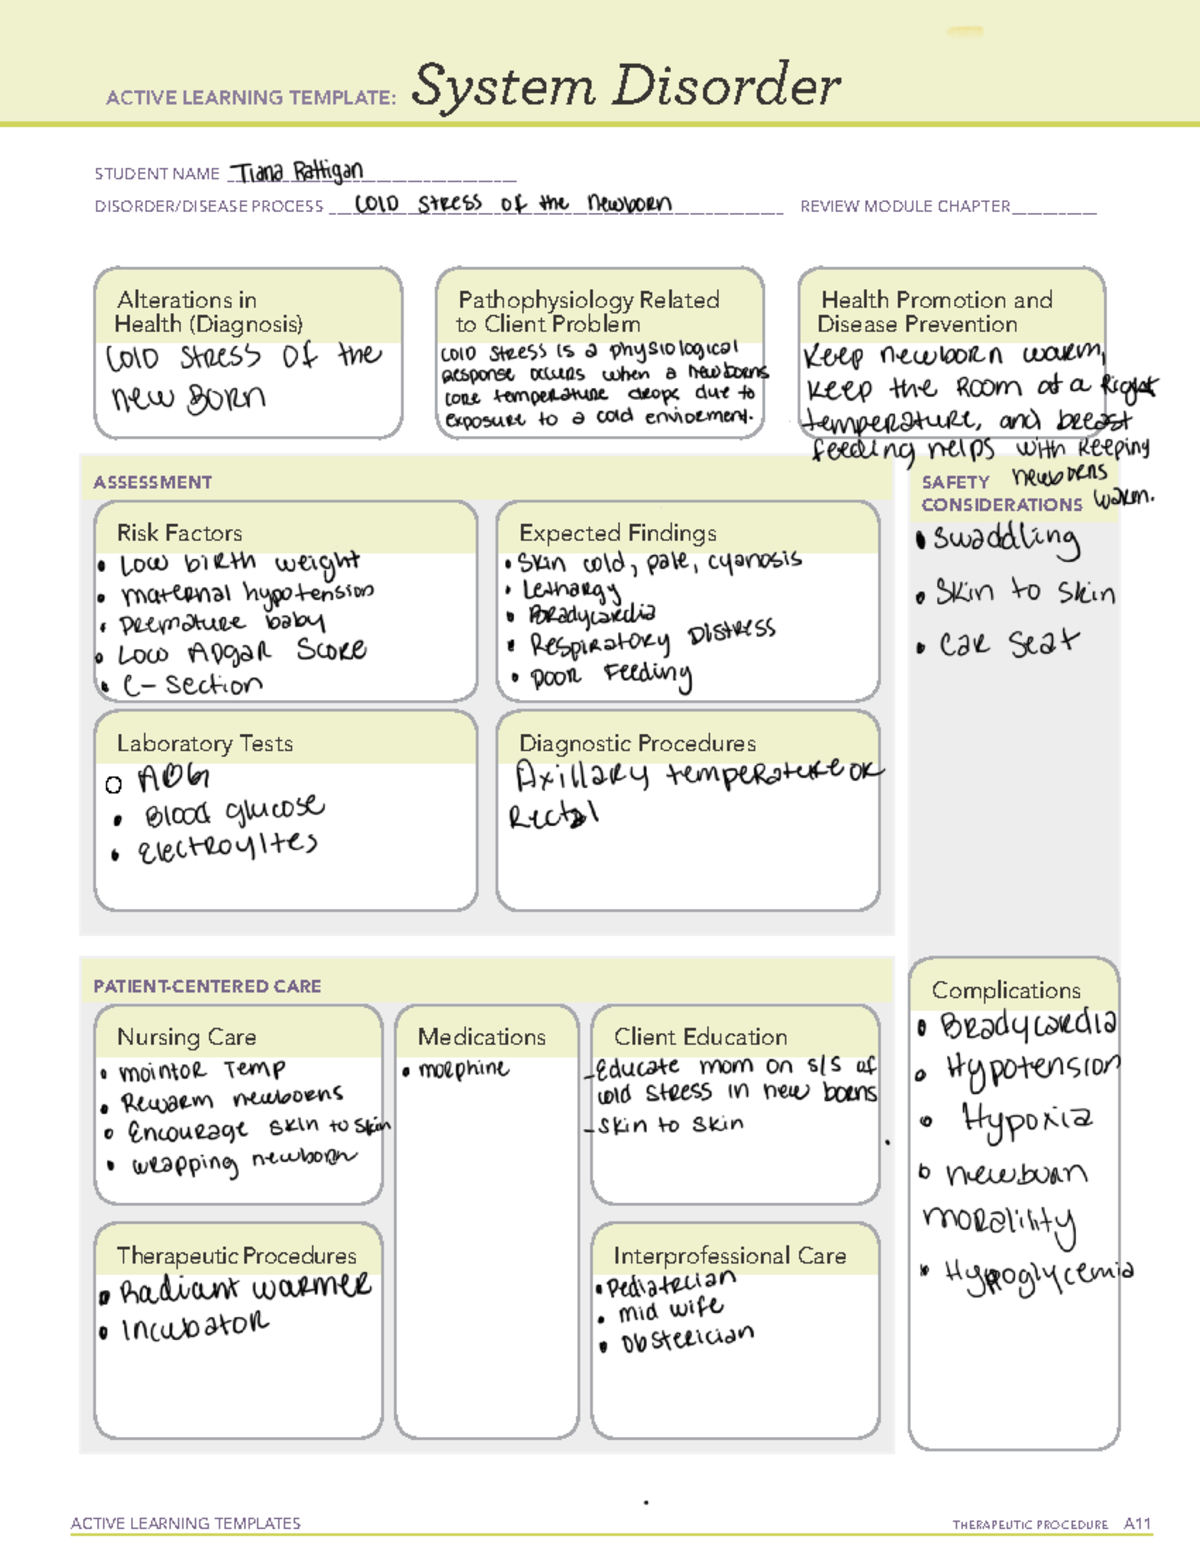 ACTIVE LEARNING TEMPLATE: System Disorder
STUDENT NAME Tiana Rattigan
DISORDER/DISEASE PROCESS Cold stress of the newborn REVIEW MODULE CHAPTER
Alterations in
Health (Diagnosis)
Cold stress of the
new Born
Pathophysiology Related
to Client Problem
cold stress is a physiological
response occurs when a newborns
core temperature drops due to
exposure to a cold enviorment.
Health Promotion and
Disease Prevention
Keep newborn warm,
keep the room at a right
temperature, and breast
feeding helps with keeping
newborns
warm.
ASSESSMENT
SAFETY
CONSIDERATIONS
Risk Factors
• Low birth weight
• maternal hypotension
• premature baby
• Low Apgar Score
• C-section
Expected Findings
• Skin cold, pale, cyanosis
• Lethargy
• Bradycardia
• Respiratory Distress
• poor feeding
• Swaddling
• Skin to skin
• Car seat
Laboratory Tests
○ ABG
• Blood glucose
• Electroyltes
Diagnostic Procedures
Axillary temperature or
Rectal
PATIENT-CENTERED CARE
Nursing Care
• mointor Temp
• Rewarm newborns
• Encourage skin to skin
• wrapping newborn
Medications
• morphine
Client Education
-Educate mom on s/s of
cold stress in new borns
-Skin to skin
Complications
• Bradycardia
• Hypotension
• Hypoxia
• newborn
morality
• Hypoglycemia
Therapeutic Procedures
• Radiant warmer
• Incubator
Interprofessional Care
• Pediatrcian
• mid wife
• Obsterician
ACTIVE LEARNING TEMPLATES
THERAPEUTIC PROCEDURE A11